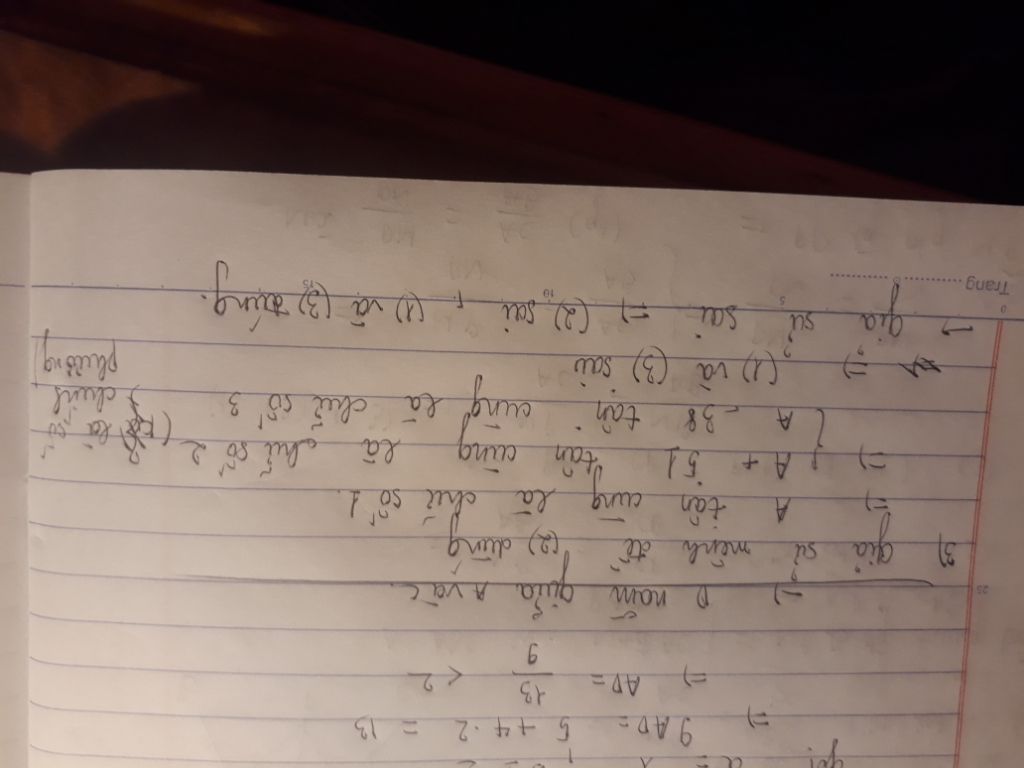 => 9AD = 5 + 4.2 = 13
=> AD = 13/9 < 2
=> D nằm giữa A và C.
3) giả sử mệnh đề (2) đúng
=> A tận cùng là chữ số 1.
=> { A + 51 tận cùng là chữ số 2 ( là số
A - 38 tận cùng là chữ số 3 } chính phương
=> (1) và (3) sai
=> giả sử sai => (2) sai, (1) và (3) đúng.
Trang